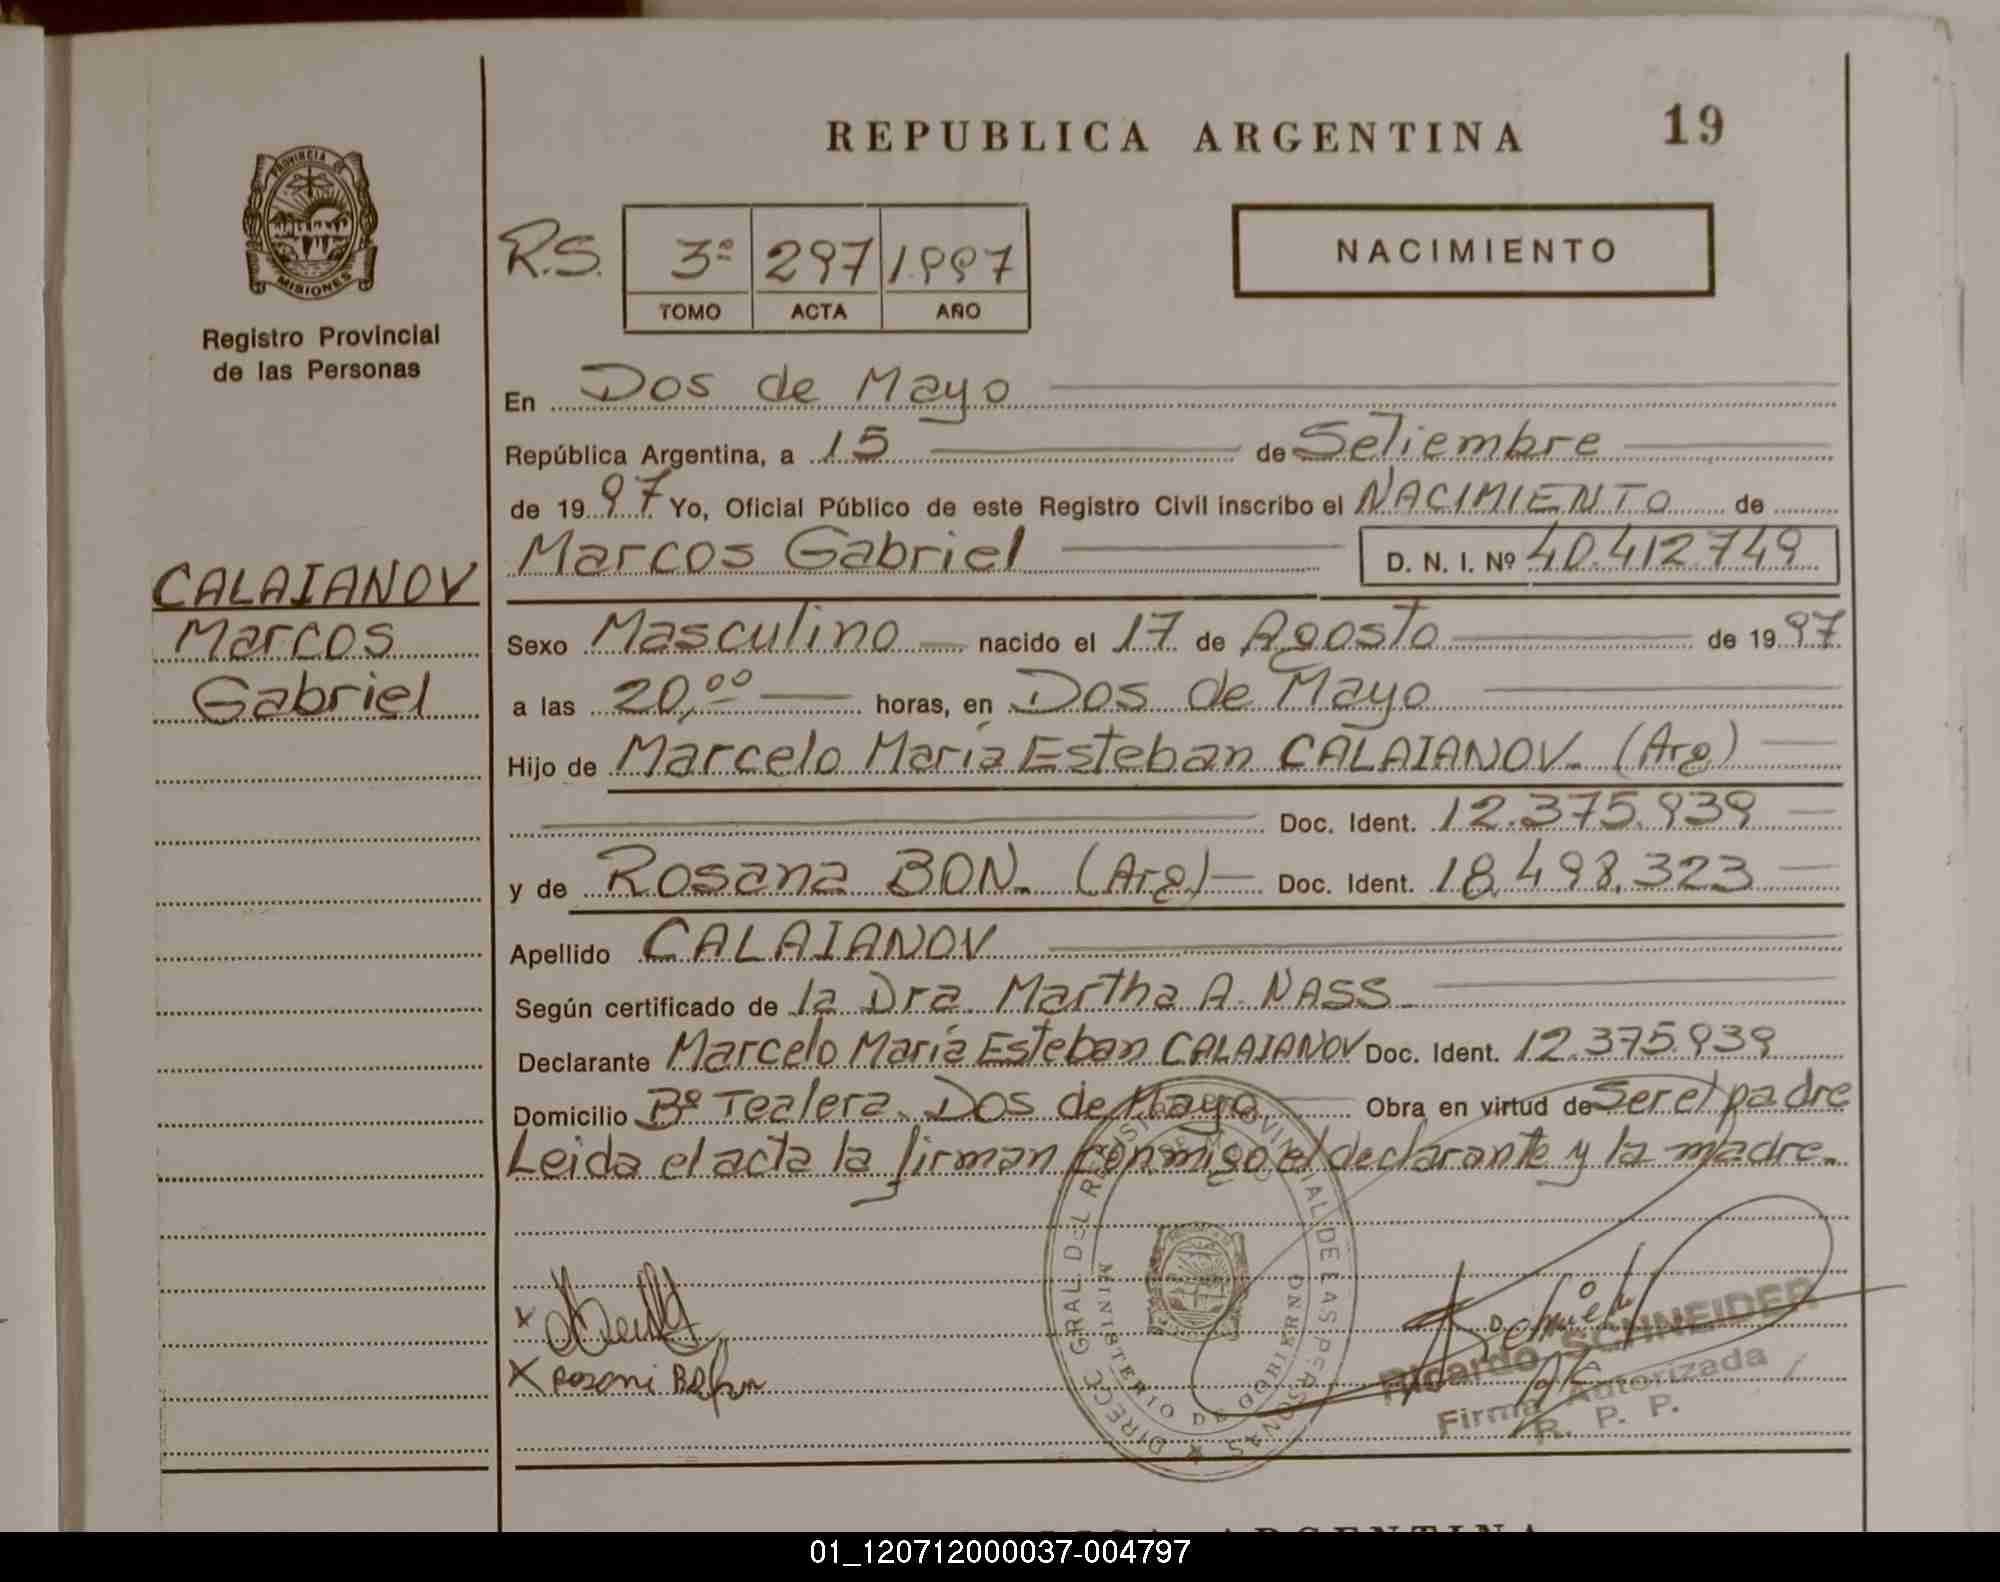 REPUBLICA ARGENTINA 19
PROVINCIA DE
MISIONES
Registro Provincial
de las Personas
R.S. 3º 297 1.997
TOMO ACTA AÑO
NACIMIENTO
En Dos de Mayo
República Argentina, a 15 de Setiembre
de 1997 Yo, Oficial Público de este Registro Civil inscribo el NACIMIENTO de
Marcos Gabriel D. N. I. Nº 40.412.749
CALAIANOV
Marcos
Gabriel
Sexo Masculino nacido el 17 de Agosto de 1997
a las 20,00 horas, en Dos de Mayo
Hijo de Marcelo María Esteban CALAIANOV. (Arg)
Doc. Ident. 12.375.939
y de Rosana BON. (Arg) Doc. Ident. 18.498.323
Apellido CALAIANOV
Según certificado de la Dra. Martha A. NASS
Declarante Marcelo María Esteban CALAIANOV Doc. Ident. 12.375.939
Domicilio Bº Tealera. Dos de Mayo Obra en virtud de Ser el padre
Leida el acta la firman conmigo el declarante y la madre.
DIRECC GRAL DEL REGIST PROVINCIAL DE LAS PERSONAS
MINISTERIO DE GOBIERNO
X
X
Ricardo SCHNEIDER
Firma Autorizada
R. P. P.
ARGENTINA
01_120712000037-004797